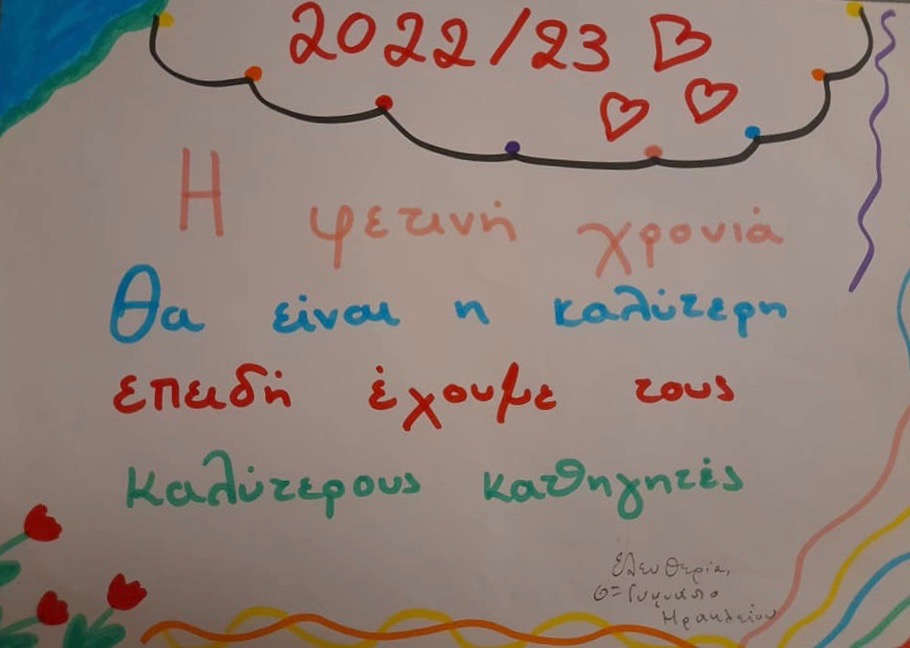 2022/23
Η φετινή χρονιά
Θα είναι η καλύτερη
επειδή έχουμε τους
καλύτερους καθηγητές
Ελευθερία,
6º Γυμνάσιο
Ηρακλείου